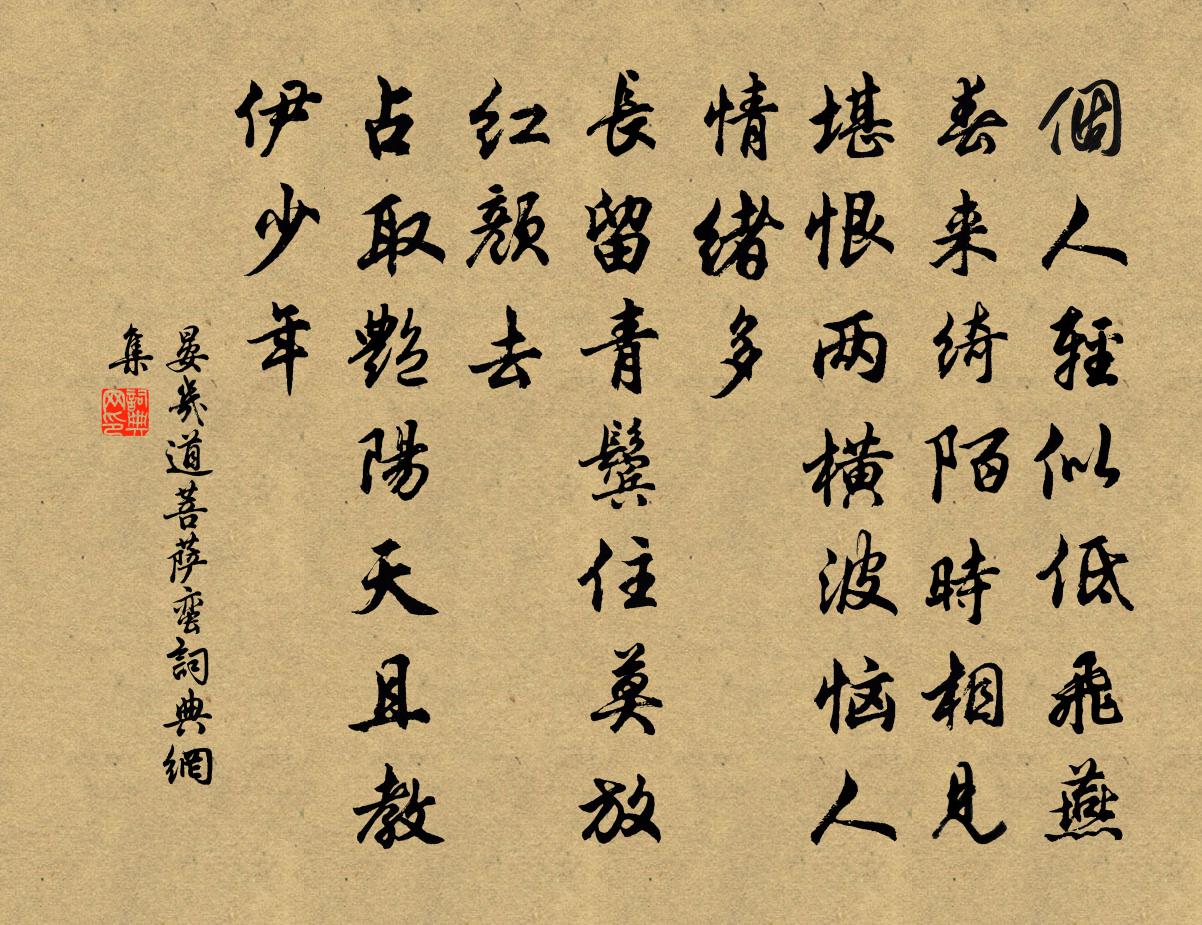 個人輕似低飛燕
春来綺陌時相見
堪恨两橫波惱人
情緒多
長留青鬓住莫放
红顏去
占取艷陽天且教
伊少年
晏幾道菩萨蛮詞典網
集
詞典網印